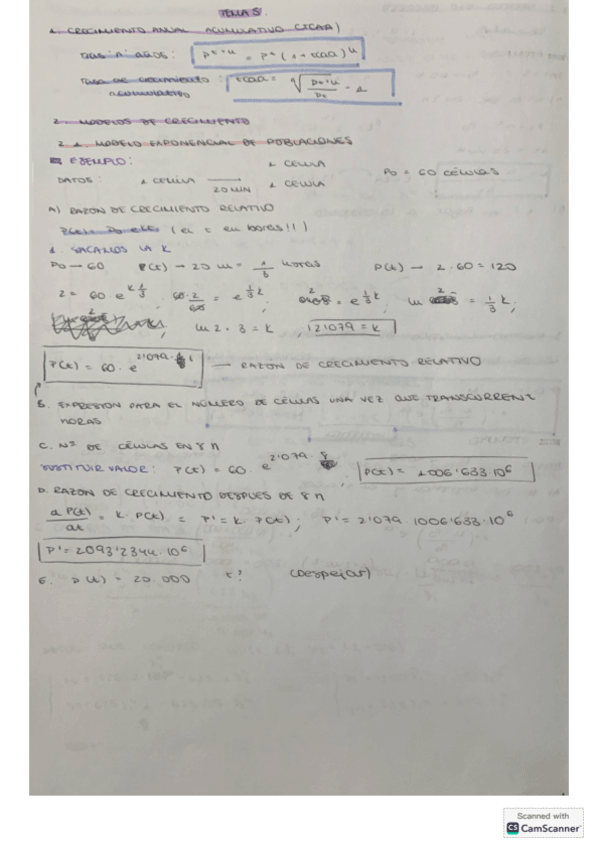 TEMA 5
1. CRECIMIENTO ANUAL ACUMULATIVO (TCAA)
TRAS "n" AÑOS: P^t+n = P^t (1 + tcaa)^n
Tasa de crecimiento acumulativo: tcaa = √ Pt+n / Pt - 1
2. MODELOS DE CRECIMIENTO
2.1. MODELO EXPONENCIAL DE POBLACIONES
EJEMPLO: 1 CELULA
DATOS: 1 CELULA → 20 MIN 1 CELULA P0 = 60 CÉLULAS
A) RAZÓN DE CRECIMIENTO RELATIVO
(el t en horas!!)
1. SACAMOS LA K
P0 → 60 P(t) → 20 m = 1/3 horas P(t) → 2·60 = 120
2 = 60·e^k 1/3 ; 60·2/60 = e^1/3 k ; 2 = e^1/3 k ; ln 2 = 1/3 k ;
ln 2 · 3 = k ,
P(t) = 60·e^2'079· t → RAZÓN DE CRECIMIENTO RELATIVO
B. EXPRESIÓN PARA EL NÚMERO DE CÉLULAS UNA VEZ QUE TRANSCURREN t
HORAS
C. Nº DE CÉLULAS EN 8 h
SUSTITUIR VALOR: P(t) = 60·e^2'079·8 ; P(t) = 1006'633·10^6
D. RAZÓN DE CRECIMIENTO DESPUES DE 8 h
d P(t)/dt = k·P(t) = P' = k·P(t) ; P' = 2'079·1006'633·10^6
P' = 2093'2344·10^6
E. P(t) = 20.000 t? (despejar)
Scanned with
CS CamScanner